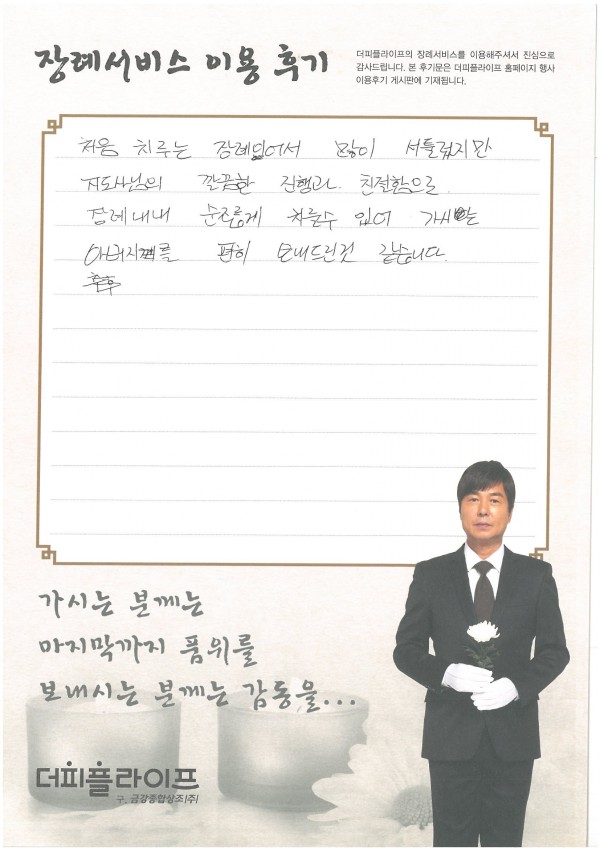 장례서비스 이용 후기
더피플라이프의 장례서비스를 이용해주셔서 진심으로
감사드립니다. 본 후기문은 더피플라이프 홈페이지 행사
이용후기 게시판에 기재됩니다.
처음 치루는 장례있어서 많이 서툴렀지만
지도사님의 깔끔한 진행과 친절함으로
장례내내 순조롭게 치룰수 있어 가시는
아버지께를 편히 보내드린것 같습니다.
가시는 분께는
마지막까지 품위를
보내시는 분께는 감동을...
더피플라이프
구. 금강종합상조(주)